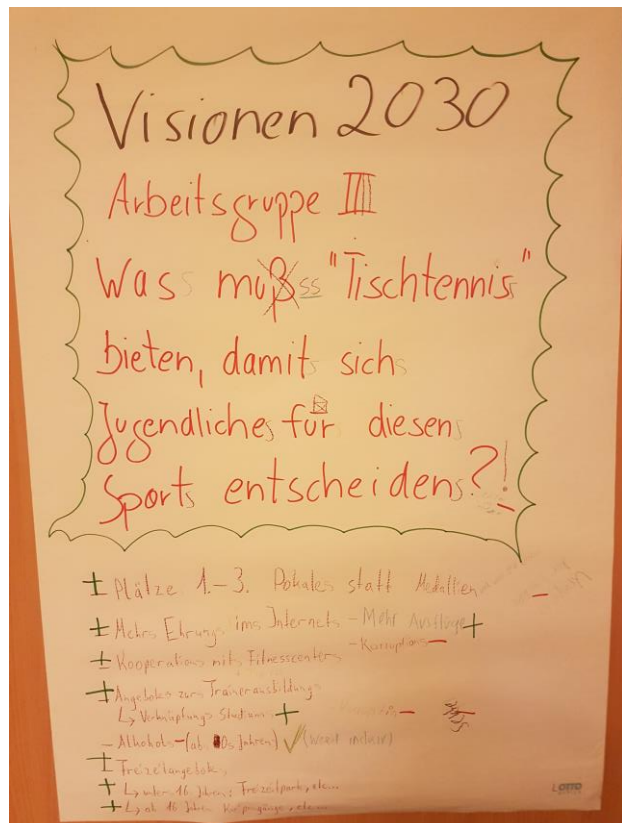 Visionen 2030
Arbeitsgruppe III
Was muß ss "Tischtennis"
bieten, damit sich
Jugendliche, für diesen
Sport entscheidens?!
± Plätze 1.-3. Pokales statt Medallien
± Mehrs Ehrungs ims Internets - Mehr Ausflüge +
± Kooperations mits Fitnesscenters - Korruptions -
± Angebotes zur Trainerausbildungs
↳ Verknüpfungs Studiums +
- Alkohols - (ab Jahren) ✓
± Freizeitangebote
+ ↳ unter 16 Jahren: Freizeitpark, etc...
+ ↳ ab 16 Jahren etc...
LOTTO